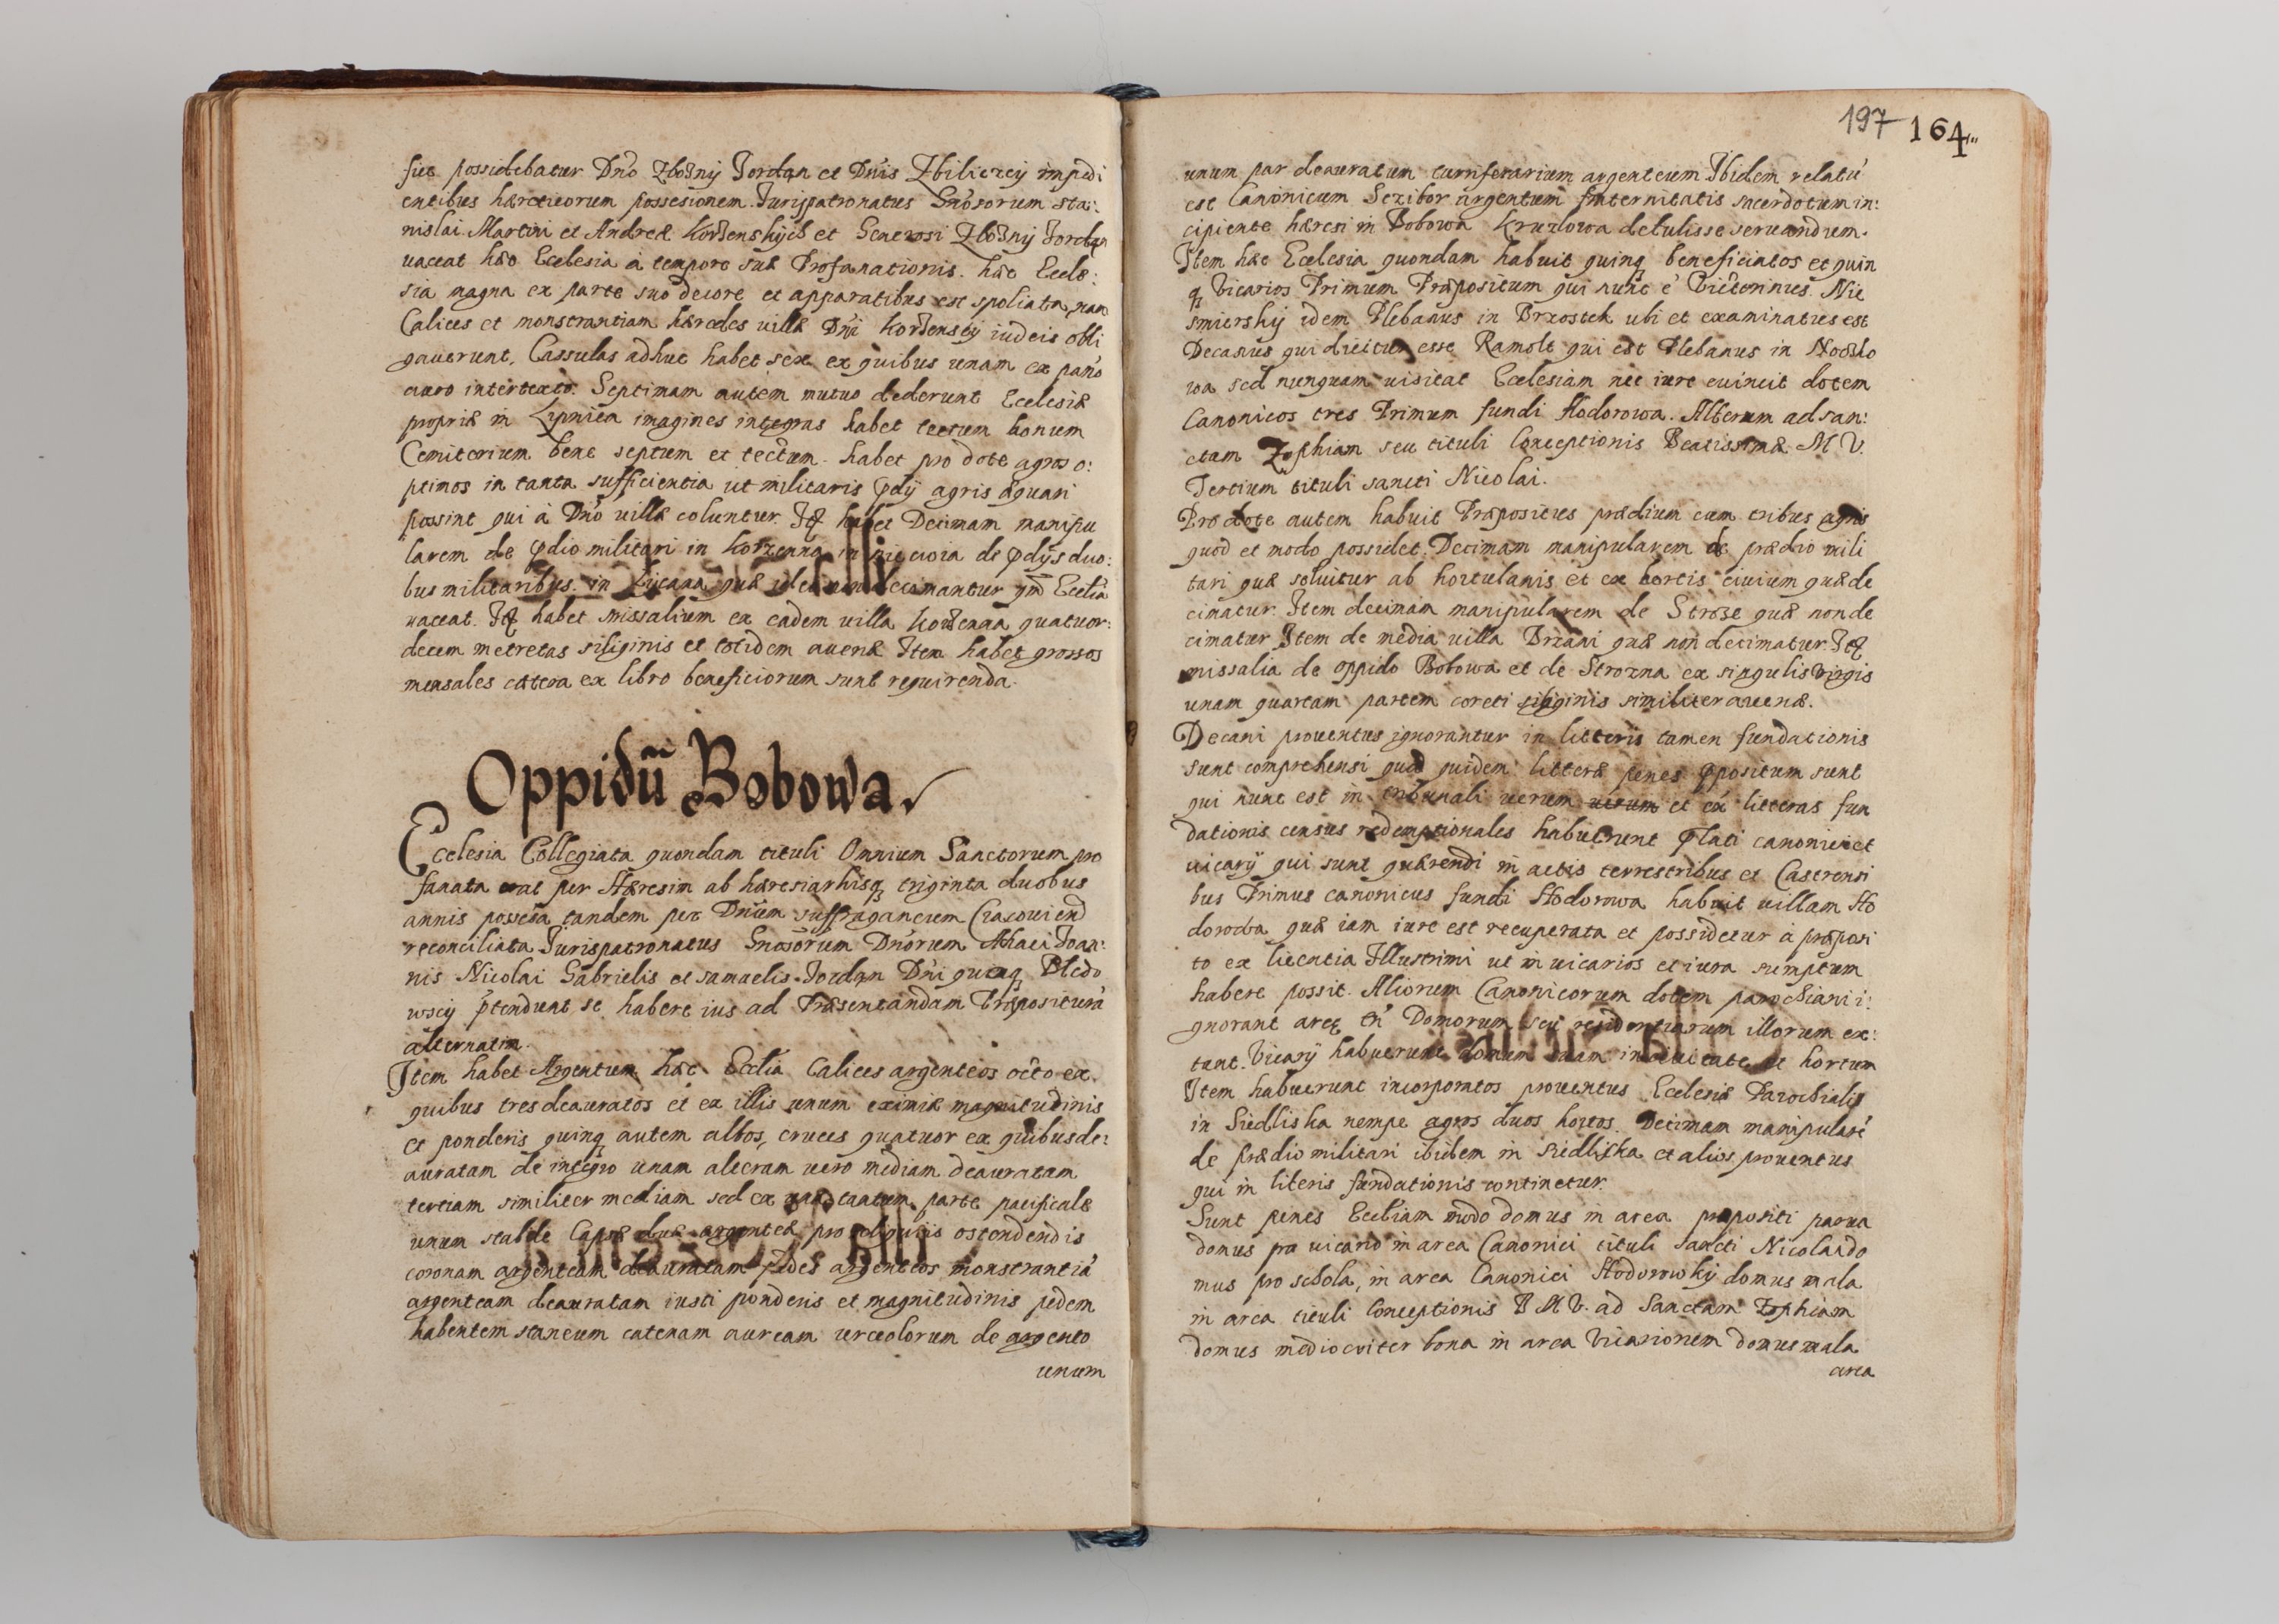 fuc possidebatur Dno Zbožny Jordan et Dnis Zbiliczcy impedi
entibus hæreticorum possesionem. Jurispatronatus Gnosorum Sta:
nislai Martini et Andreæ Korženskych et Generosi Zbožny Jordan
uaceat hæc Ecclesia à tempore suæ Profanationis. hæc Eccle:
sia magna ex parte suo decore et apparatibus est spoliata, nam
Calices et monstrantiam hæredes uillæ Dni Korżenscy iudeis obli
gauerunt. Cassulas adhuc habet sex ex quibus unam ex pano
auro intertexto. Septimam autem mutuo dederunt Ecclesiæ
propriæ in Lipnica imagines integras habet tectum bonum
Cemiterium bene septum et tectum. habet pro dote agros o:
ptimos in tanta sufficientia ut militaris pdij agris æquari
possint qui à Dno uillæ coluntur. Itē habet Decimam manipu
larem de pdio militari in Korzenna in de pdijs duo:
bus militaribus. in Lijcana quæ decimantur qm̄ Ecclia
uaceat. Itē habet missalium ex eadem uilla Korżenna quatuor:
decem metretas siliginis et totidem auenæ Item habet grossos
mensales cætera ex libro beneficiorum sunt requirenda.
Oppidū Bobowa.
Ecclesia Collegiata quondam tituli Omnium Sanctorum pro
fanata erat per Hæresim ab hæresiarhisq; triginta duobus
annis possessa tandem per Dnum suffraganeum Cracouiens
reconciliata Jurispatronatus Gnosorum Dnorum Ahaci Joan:
nis Nicolai Gabrielis et Samuelis Jordan Dni quinq; Pledo
wscy ptendunt se habere ius ad Præsentandam Præposituram
alternatim.
Item habet Argentum hæc Ecclia Calices argenteos octo ex
quibus tres deauratos et ex illis unum eximiæ magnitudinis
et ponderis quinq; autem albos, cruces quatuor ex quibus de:
auratam de integro unam alteram uero mediam deauratam
tertiam similiter mediam sed ex una tantum parte pacificale
unum stabile Capsæ duæ argenteæ pro reliquiis ostendendis
coronam argenteam deauratam pedes argenteos monstrantiā
argenteam deauratam iusti ponderis et magnitudinis pedem
habentem staneum catenam auream urceolorum de argento
unum
197 164
unum par deauratum turriferarium argenteum Ibidem relatū
est Canonicum Sczibor argentum fraternitatis sacerdotum in:
cipiente hæresi in Bobowa Kruzlowa detulisse seruandum.
Item hæc Ecclesia quondam habuit quinq; beneficiatos et quin
q; Vicarios Primum Præpositum qui nunc è Victorinus Nie
smierskij idem Plebanus in Brzostek ubi et examinatus est
Decanus qui dicitur esse Ramolt qui est Plebanus in
wa sed nunquam uisitat Ecclesiam nec iure euincit dotem
Canonicos tres Primum fundi Hodorowa. Alterum ad san:
ctam Zophiam seu tituli Conceptionis Beatissimæ M V.
Tertium tituli sancti Nicolai.
Pro dote autem habuit Præpositus prædium cum tribus agris
quod et modo possidet. Decimam manipularem de prædio mili
tari quæ soluitur ab hortulanis et ex hortis ciuium quæ de
cimatur. Item decimam manipularem de Stroże quæ non de
cimatur Item de media uilla Brzani quæ non decimatur. Itē
missalia de oppido Bobowa et de Strozna ex singulis virgis
unam quartam partem coreti siliginis similiter auenæ.
Decani prouentus ignorantur in litteris tamen fundationis
sunt comprehensi quæ quidem litteræ penes ppositum sunt
qui nunc est in tribunali uerum uerum et ex litteras fun
dationis census redemptionales habuerunt plati canonici et
uicarij qui sunt quærendi in actis terrestribus et Castrensi
bus Primus canonicus fundi Hodorowa habuit uillam Ho
dorowa quæ iam iure est recuperata et possidetur à præposi
to ex licentia Illustrimi ut in uicarios et iura sumptum
habere possit. Aliorum Canonicorum dotem parochiani i:
gnorant areæ tn̄ Domorum seu residentiarum illorum ex:
tant. Vicarij habuerunt domum suam in ciuitate et hortum
Item habuerunt incorporatos prouentus Ecclesiæ Parochialis
in Siedliska nempe agros duos hortos. Decimam manipularē
de prædio militari ibidem in Siedliska et alios prouentus
qui in literis fundationis continetur.
Sunt penes Eccliam modo domus in area præpositi parua
domus pro uicario in area Canonici tituli Sancti Nicolai do
mus pro schola, in area Canonici Hodorowskij domus mala
in area tituli Conceptionis B M V. ad Sanctam Zophiam
domus mediocriter bona in area Vicariorum domus mala
area